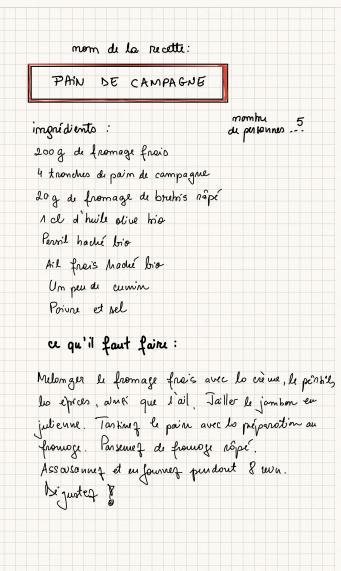 nom de la recette:
PAIN DE CAMPAGNE
nombre
de personnes ... 5
ingrédients :
200 g de fromage frais
4 tranches de pain de campagne
20 g de fromage de brebis râpé
1 cl d'huile olive bio
Persil haché bio
Ail frais haché bio
Un peu de cumin
Poivre et sel
ce qu'il faut faire :
Melanger le fromage frais avec la crème, le persil,
les épices, ainsi que l'ail. Tailler le jambon en
julienne. Tartinez le pain avec la préparation au
fromage. Parsemez de fromage râpé.
Assaisonnez et enfournez pendant 8 mn.
Dégustez !